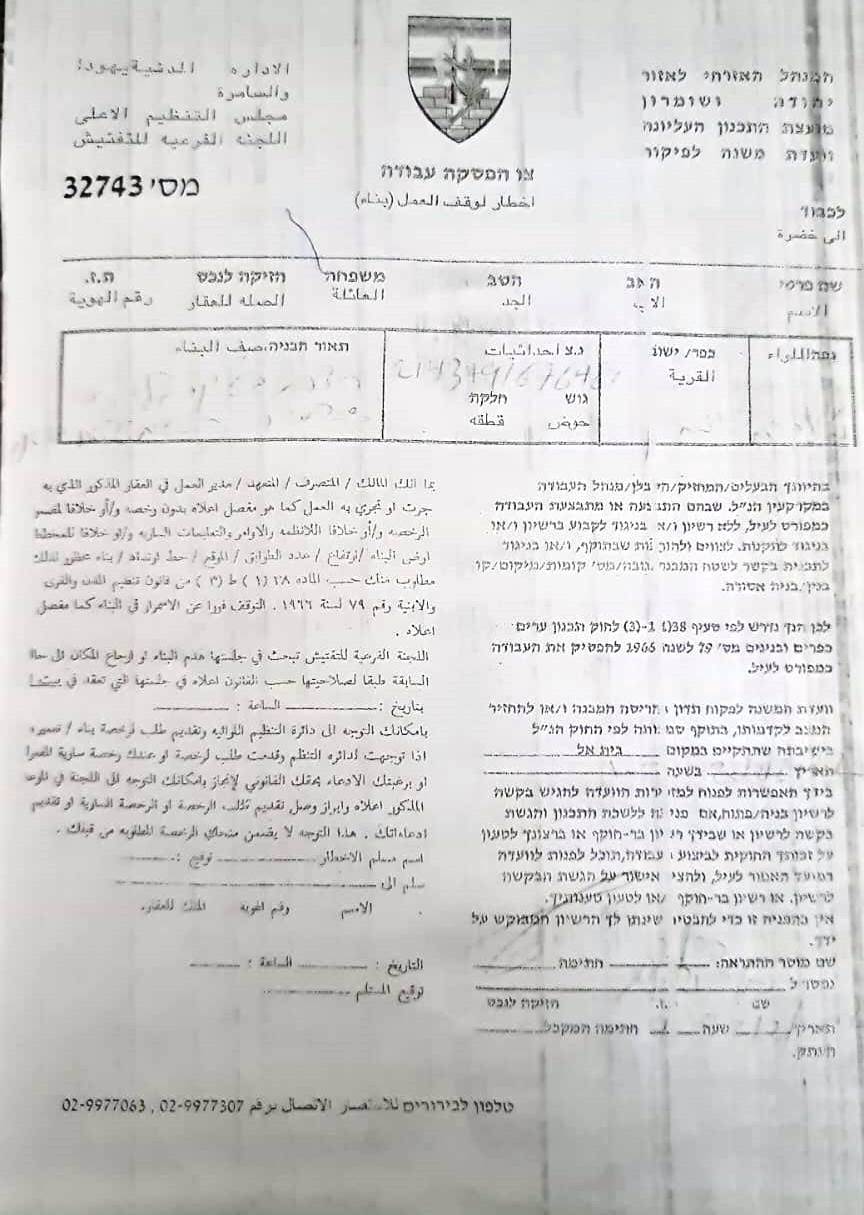 המנהל האזרחי לאזור
יהודה ושומרון
מועצת התכנון העליונה
וועדת משנה לפיקוח
الاداره المدنية يهودا
والسامرة
مجلس التنظيم الاعلى
اللجنه الفرعيه للتفتيش
צו הפסקה עבודה
اخطار لوقف العمل (بناء)
מס' 32743
לכבוד
الى حضرة
שם פרטי האב הסב משפחה הזיקה לנכס ת.ז.
الاسم الاب الجد العائلة الصله للعقار رقم الهوية
נפה اللواء כפר/ישוב נ.צ احداثيات תאור הבניה، صف البناء
القرية
גוש חלקה
حوض قطقه
בהיותך הבעלים/המחזיק/
במקרקעין הנ"ל. שבהם העבודה
כמפורט לעיל, ללא רשיון ו/א בניגוד לקבוע ברשיון ו/או
בניגוד לתקנות. לצווים שבתוקף, ו/או בניגוד
לתכנית בקשר לשטח המבנה. גובה/מס' קומות/מיקום/קו
בנין/בניה אסורה.
לכן הנך נדרש לפי סעיף 38 לחוק תכנון ערים
כפרים ובנינים מס' 79 לשנת 1966 להפסיק את העבודה
כמפורט לעיל.
וועדת המשנה לפקוח תדון הריסת המבנה ו/או להחזיר
המצב לקדמותו, בתוקף לפי החוק הנ"ל
בישיבתה שתתקיים במקום בית אל
תאריך בשעה
בידך האפשרות לפנות הוועדה להגיש בקשה
לרשיון בניה/פתוח, אם ללשכת התכנון והגשת
בקשה לרשיון או שבידך בר-תוקף או ברצונך לטעון
על זכותך החוקית לביצוע עבודה, תוכל לפנות לוועדה
במועד האמור לעיל, ולהציג אישור על הגשת הבקשה
לרשיון. או רשיון בר-תוקף ו/או לטעון טענותיך.
אין בהפניה זו כדי להבטיח שינתן לך הרשיון המבוקש על
ידך.
שם מוסר ההתראה: חתימה
נמסר ל
שם הזיקה לנכס
תאריך שעה חתימת המקבל
העתק.
بما انك المالك / المتصرف / المتعهد / مدير العمل في العقار المذكور الذي به
جرت او تجري به العمل كما هو مفصل اعلاه بدون رخصه و/أو خلافا
الرخصه و/أو خلافا للانظمه والاوامر والتعليمات الساريه و/او خلافا للمخطط
ارض البناء /ارتفاع / عدد الطوابق / الموقع / خط ارتداد / بناء محظور لذلك
مطلوب منك حسب الماده ٣٨ (١) ط (٣) من قانون تنظيم المدن والقرى
والابنية رقم ٧٩ لسنة ١٩٦٦ . التوقف فورا عن الاستمرار في البناء كما مفصل
اعلاه .
اللجنة الفرعية للتفتيش تبحث في جلستها هدم البناء او ارجاع المكان الى حالته
السابقة طبقا لصلاحيتها حسب القانون اعلاه في جلستها التي تعقد في
بتاريخ : الساعة :
بامكانك التوجه الى دائرة التنظيم اللوائيه وتقديم طلب لرخصة بناء /
اذا توجهت لدائره التنظيم وقدمت طلب لرخصة او عندك رخصة سارية
او برغبتك الادعاء بحقك القانوني لإنجاز بامكانك التوجه الى اللجنة في الموعد
المذكور اعلاه وابراز وصل تقديم طلب الرخصة او الرخصة السارية او تقديم
ادعاءاتك . هذا التوجه لا يضمن منحك الرخصة المطلوبه من قبلك .
اسم مسلم الاخطار توقيع :
سلم الى
الاسم رقم الهوية للعقار.
التاريخ : الساعة :
توقيع المستلم
טלפון לבירורים للاستفسار الاتصال برقم 02-9977307 , 02-9977063